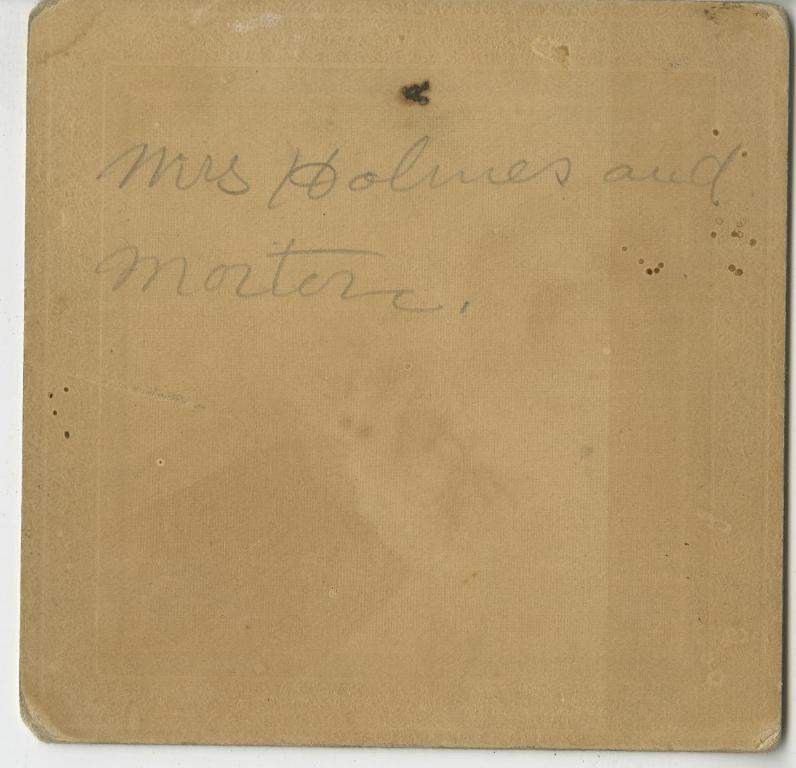 Mrs Holmes and
Morton.